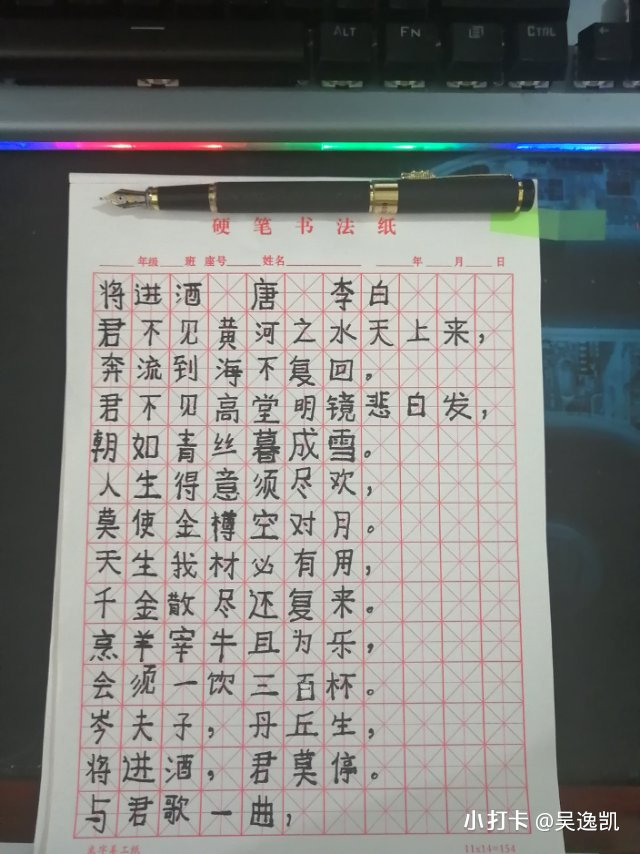 ALT FN CTRL
硬笔书法纸
年级 班 座号 姓名 年 月 日
将进酒 唐 李白
君不见黄河之水天上来，
奔流到海不复回。
君不见高堂明镜悲白发，
朝如青丝暮成雪。
人生得意须尽欢，
莫使金樽空对月。
天生我材必有用，
千金散尽还复来。
烹羊宰牛且为乐，
会须一饮三百杯。
岑夫子，丹丘生，
将进酒，君莫停。
与君歌一曲，
小打卡 @吴逸凯
11x14=154